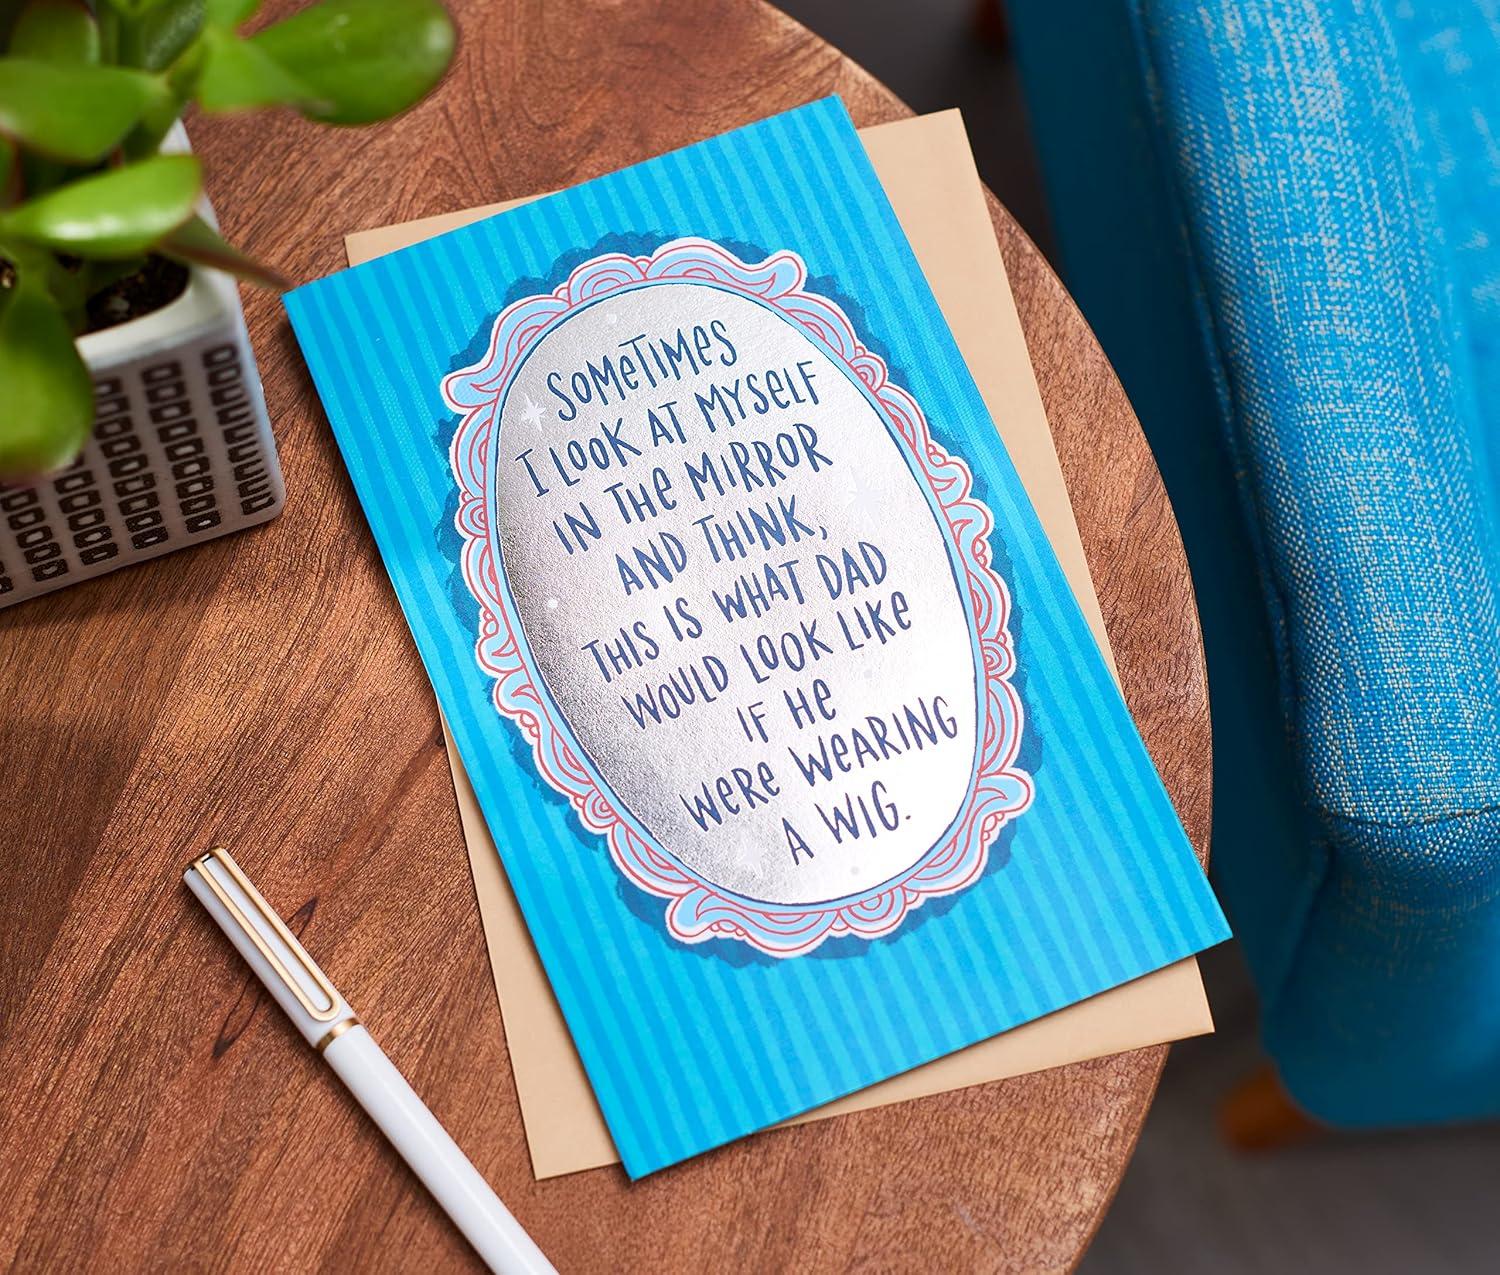 SOMETIMES
I LOOK AT MYSELF
IN THE MIRROR
AND THINK,
THIS IS WHAT DAD
WOULD LOOK LIKE
IF HE
WERE WEARING
A WIG.